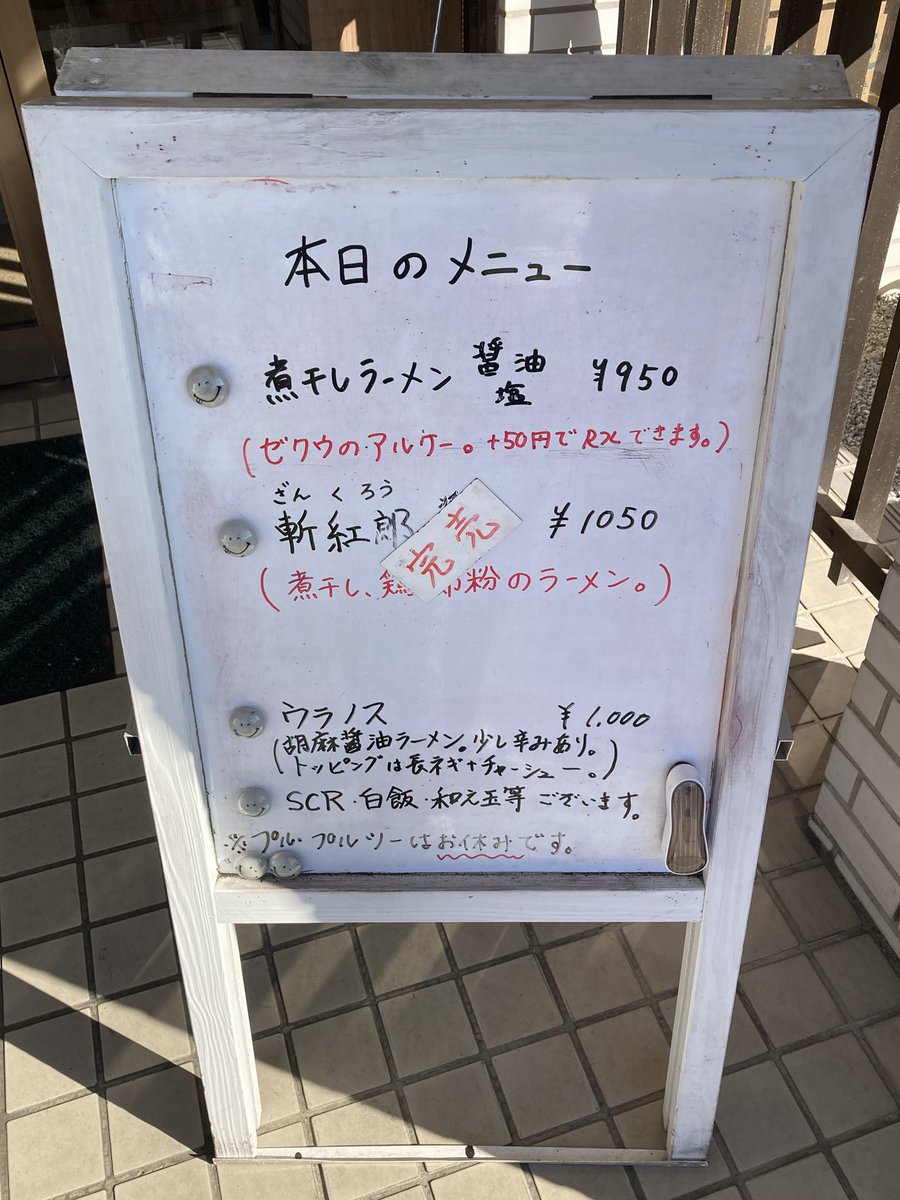 本日のメニュー
煮干しラーメン 醤油 塩 ¥950
(ゼクウの・アルケー。+50円でRXできます。)
ざんくろう
斬紅郎 ¥1050
完売
(煮干し、鶏 節粉のラーメン。)
ウラノス ¥1,000
(胡麻醤油ラーメン。少し辛みあり。
トッピングは長ネギ+チャーシュー。)
SCR・白飯・和え玉等ございます。
※プル・プルツーはお休みです。